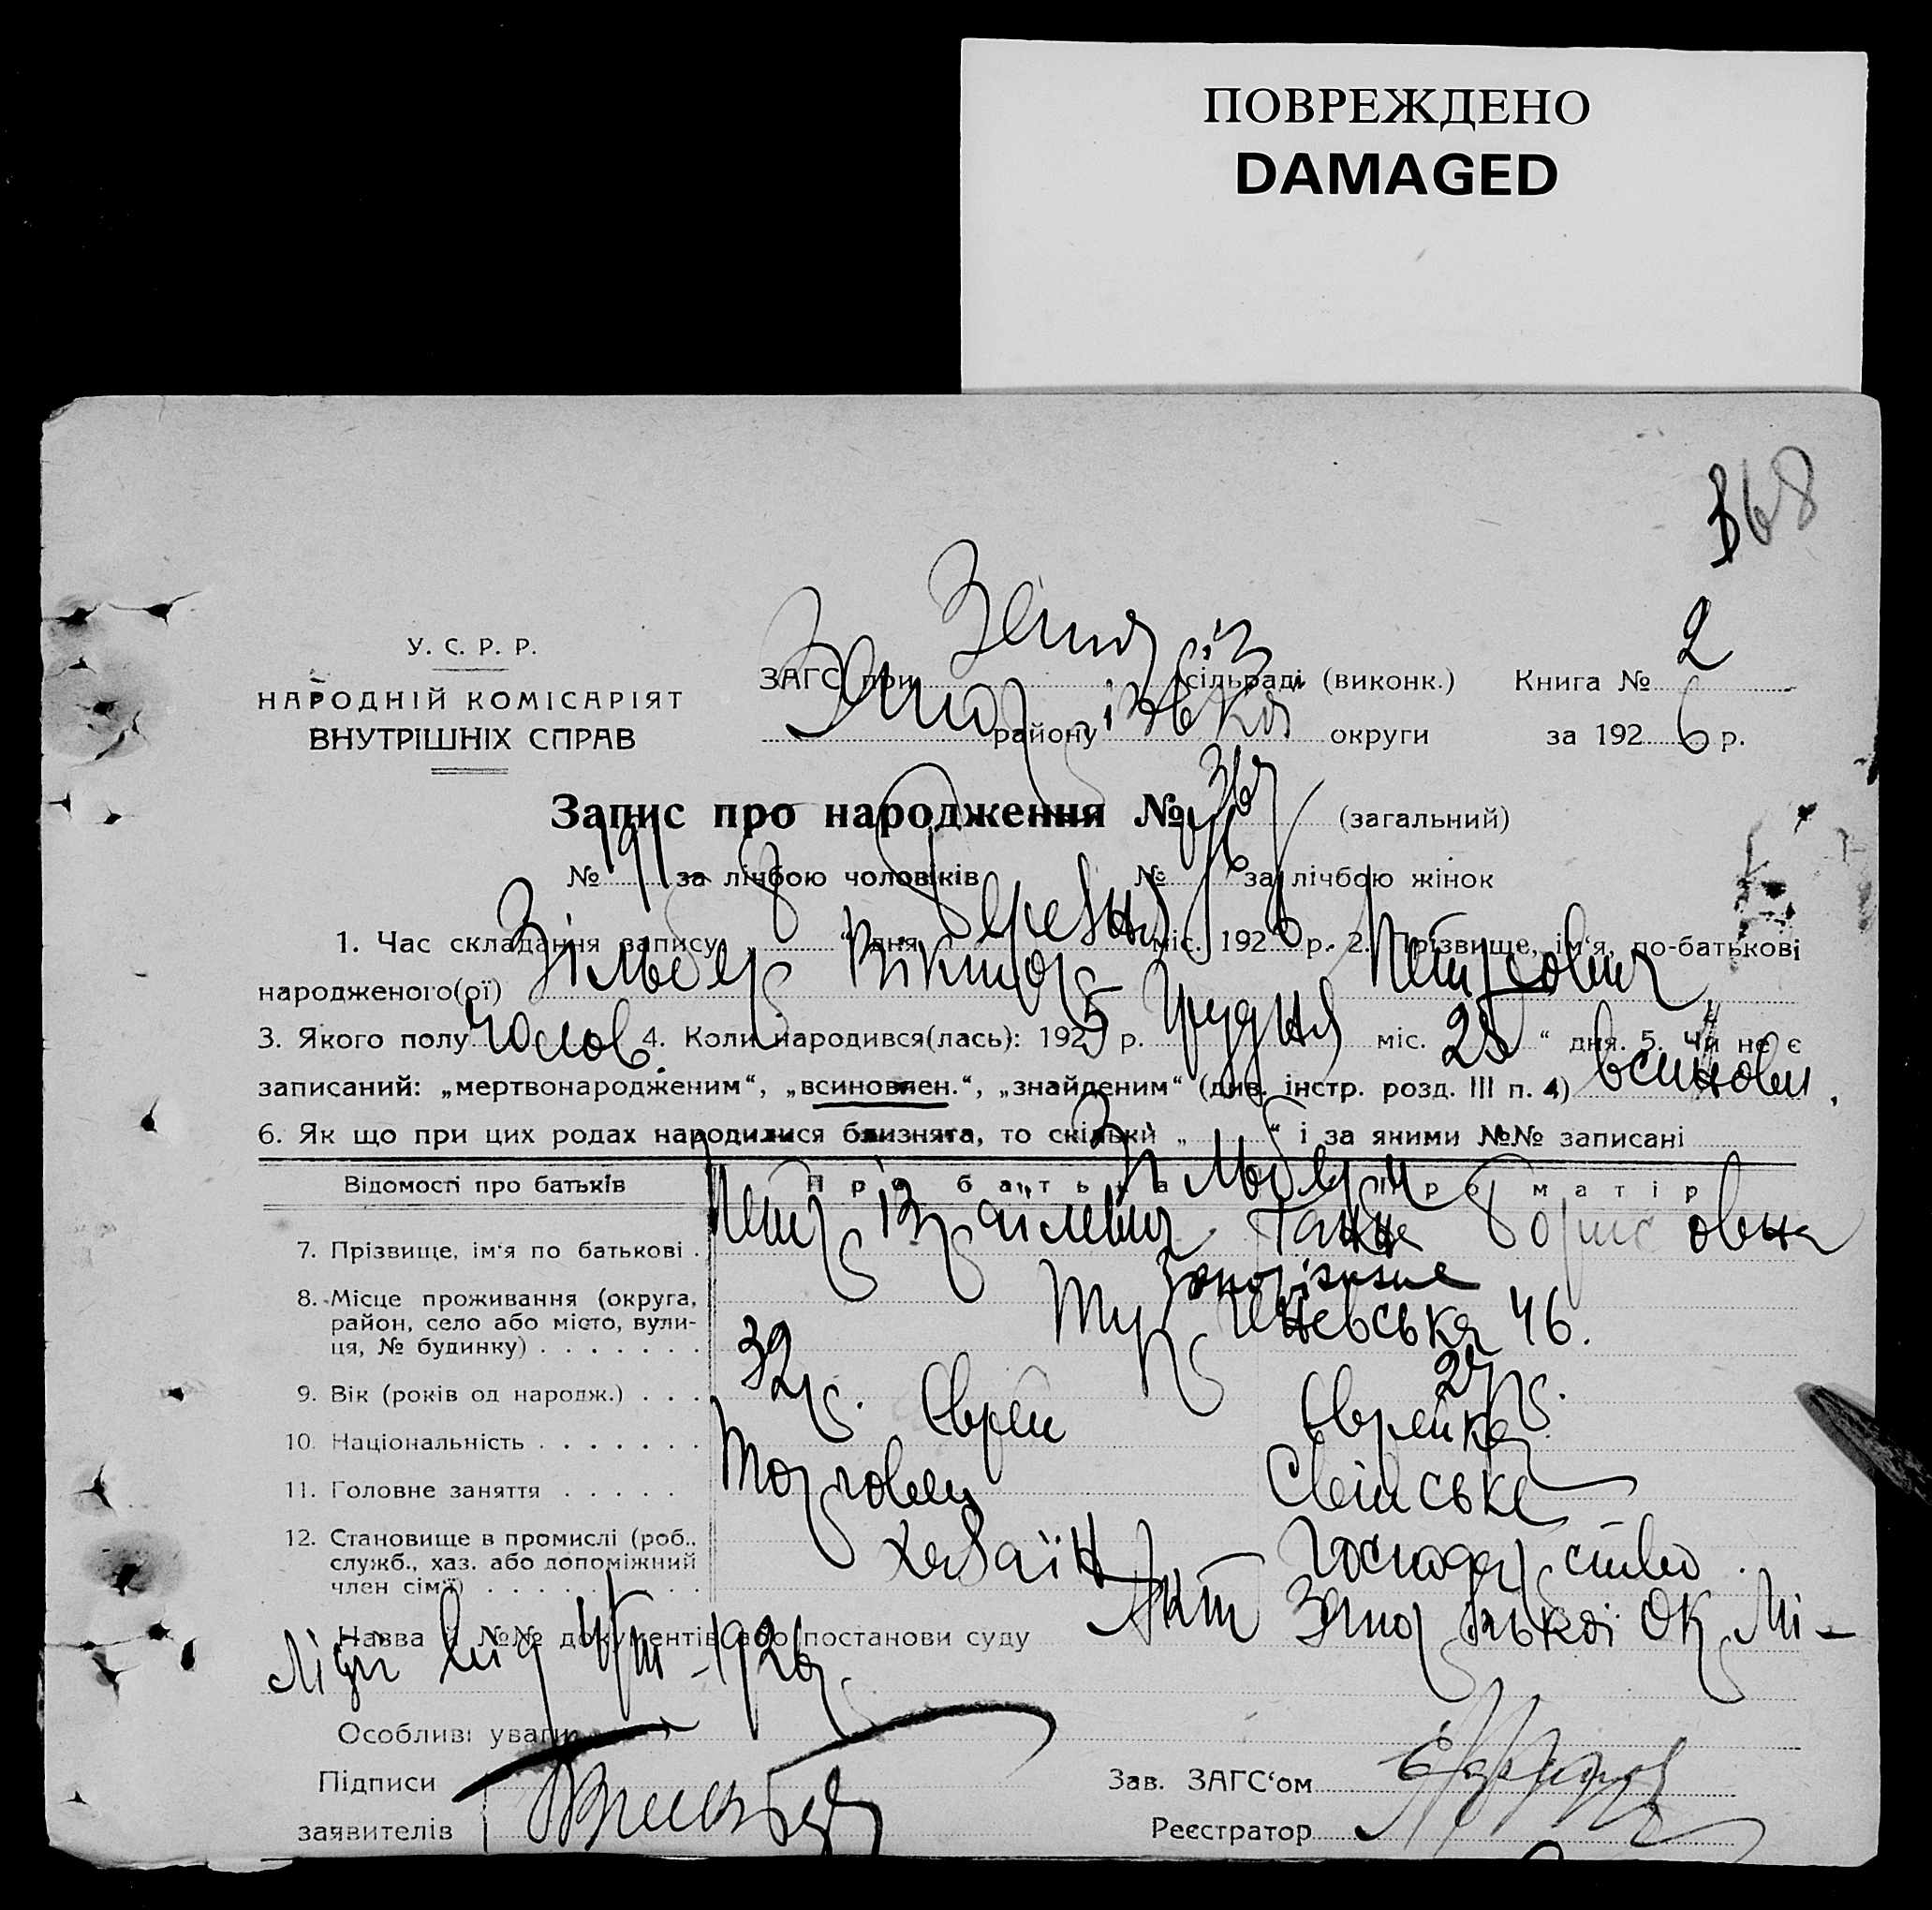 ПОВРЕЖДЕНО
DAMAGED
368
У. С. Р. Р.
НАРОДНІЙ КОМІСАРІЯТ
ВНУТРІШНІХ СПРАВ
ЗАГС при сільраді (виконк.) Книга № 2
району округи за 1926 р.
Запис про народження № 367 (загальний)
№ 191 за лічбою чоловіків № за лічбою жінок
1. Час складання запису „ 8 “ дня Березня міс. 1926 р. 2. Прізвище, ім'я, по-батькові
народженого(ої) Зільбер Віктор Петрович
3. Якого полу Чолов. 4. Коли народився(лась): 1925 р. Грудня міс. 25 “ дня. 5. Чи не є
записаний: „мертвонародженим“, „всиновлен.“, „знайденим“ (див. інстр. розд. III п. 4) всиновлен.
6. Як що при цих родах народилися близнята, то скільки „ “ і за якими №№ записані
Відомості про батьків Про батька Про матір
Зільбер
7. Прізвище, ім'я по батькові . Петр Ізраїлевич Ганна Борисовна
8. Місце проживання (округа, Запоріжжя
район, село або місто, вули- Тургеневська 46.
ця, № будинку) . . . . . . .
9. Вік (років од народж.) . . . 32 р. 27 р.
10. Національність . . . . . . . Єврей Єврейка
11. Головне заняття . . . . . Торговець Свійське
12. Становище в промислі (роб., Хазаїн Господарство.
служб., хаз. або допоміжний
член сім'ї) . . . . . . . . .
Назва й №№ документів або постанови суду Акт Запорізької Ок Мі-
ліції від 4/III-1926 р.
Особливі уваги
Підписи Зав. ЗАГС'ом
заявителів Реєстратор